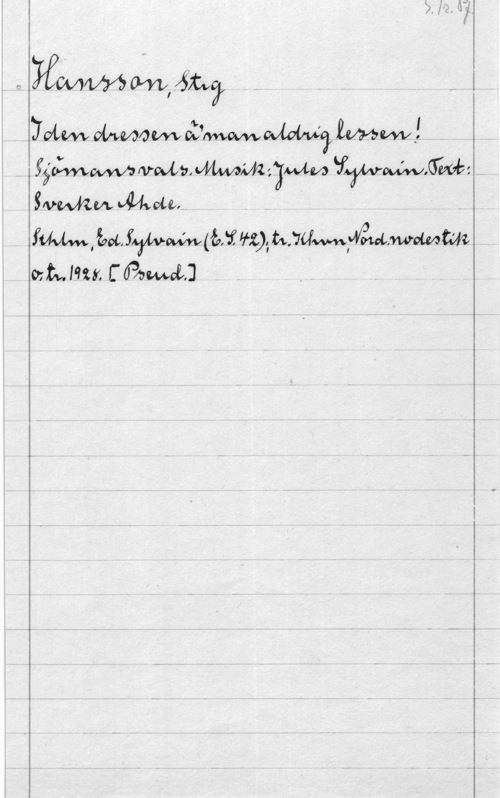 5./2. 87
Hansson, Stig
I den dressen ä' man aldrig lessen!
Sjömansvals. Musik: Jules Sylvain. Text:
Sverker Ahde.
Sthlm, Ed. Sylvain (E.S. 42); tr. Khvn, Nord. nodestik
o. tr. 1928. [Pseud.]